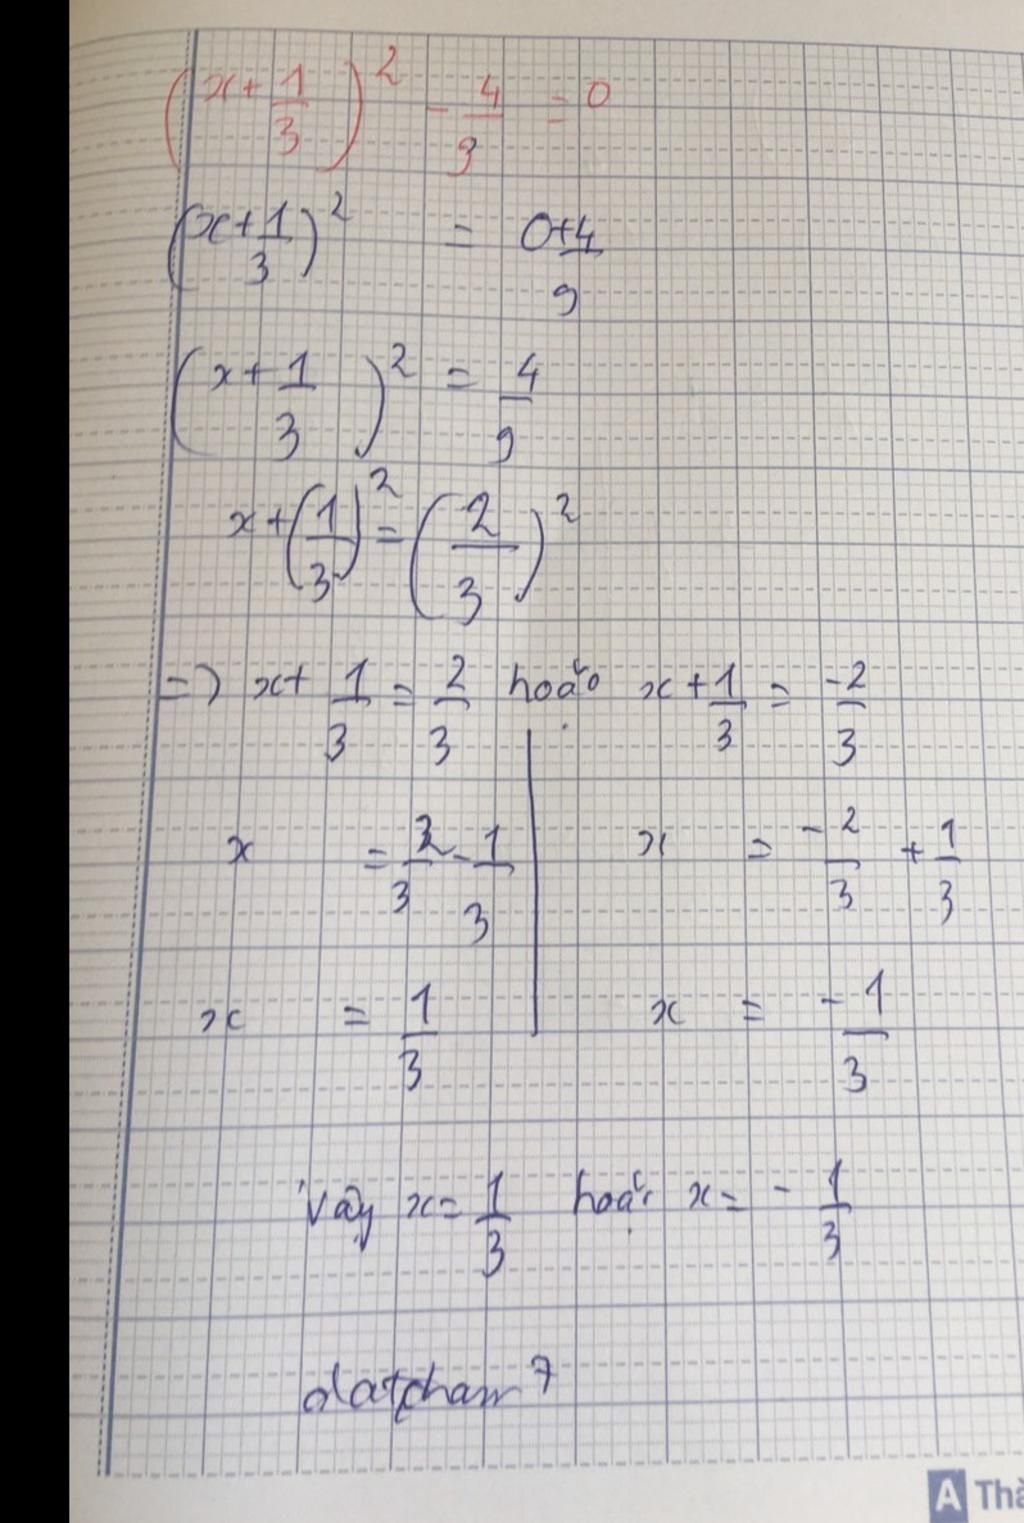 (x + 1/3)² - 4/9 = 0
(x + 1/3)² = 0 + 4/9
(x + 1/3)² = 4/9
x + (1/3)² = (2/3)²
=> x + 1/3 = 2/3 hoặc x + 1/3 = -2/3
x = 2/3 - 1/3 x = -2/3 + 1/3
x = 1/3 x = -1/3
Vậy x = 1/3 hoặc x = -1/3
datpham7
A Thà